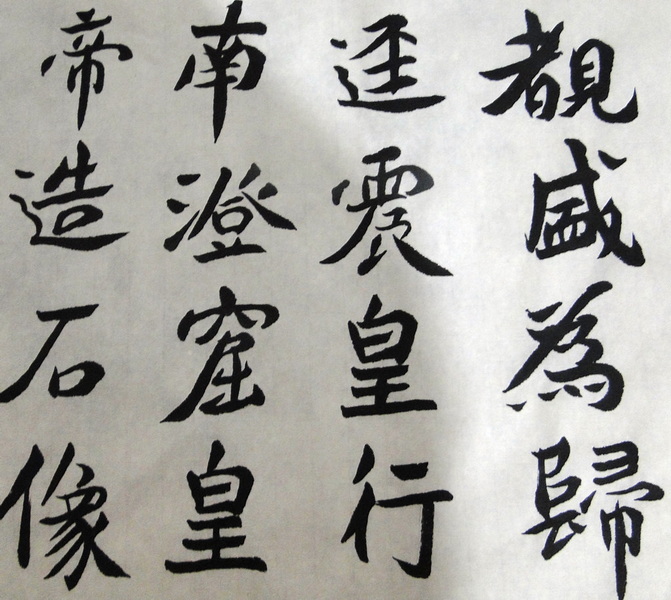 覩盛為歸
逕震皇行
南澄窟皇
帝造石像